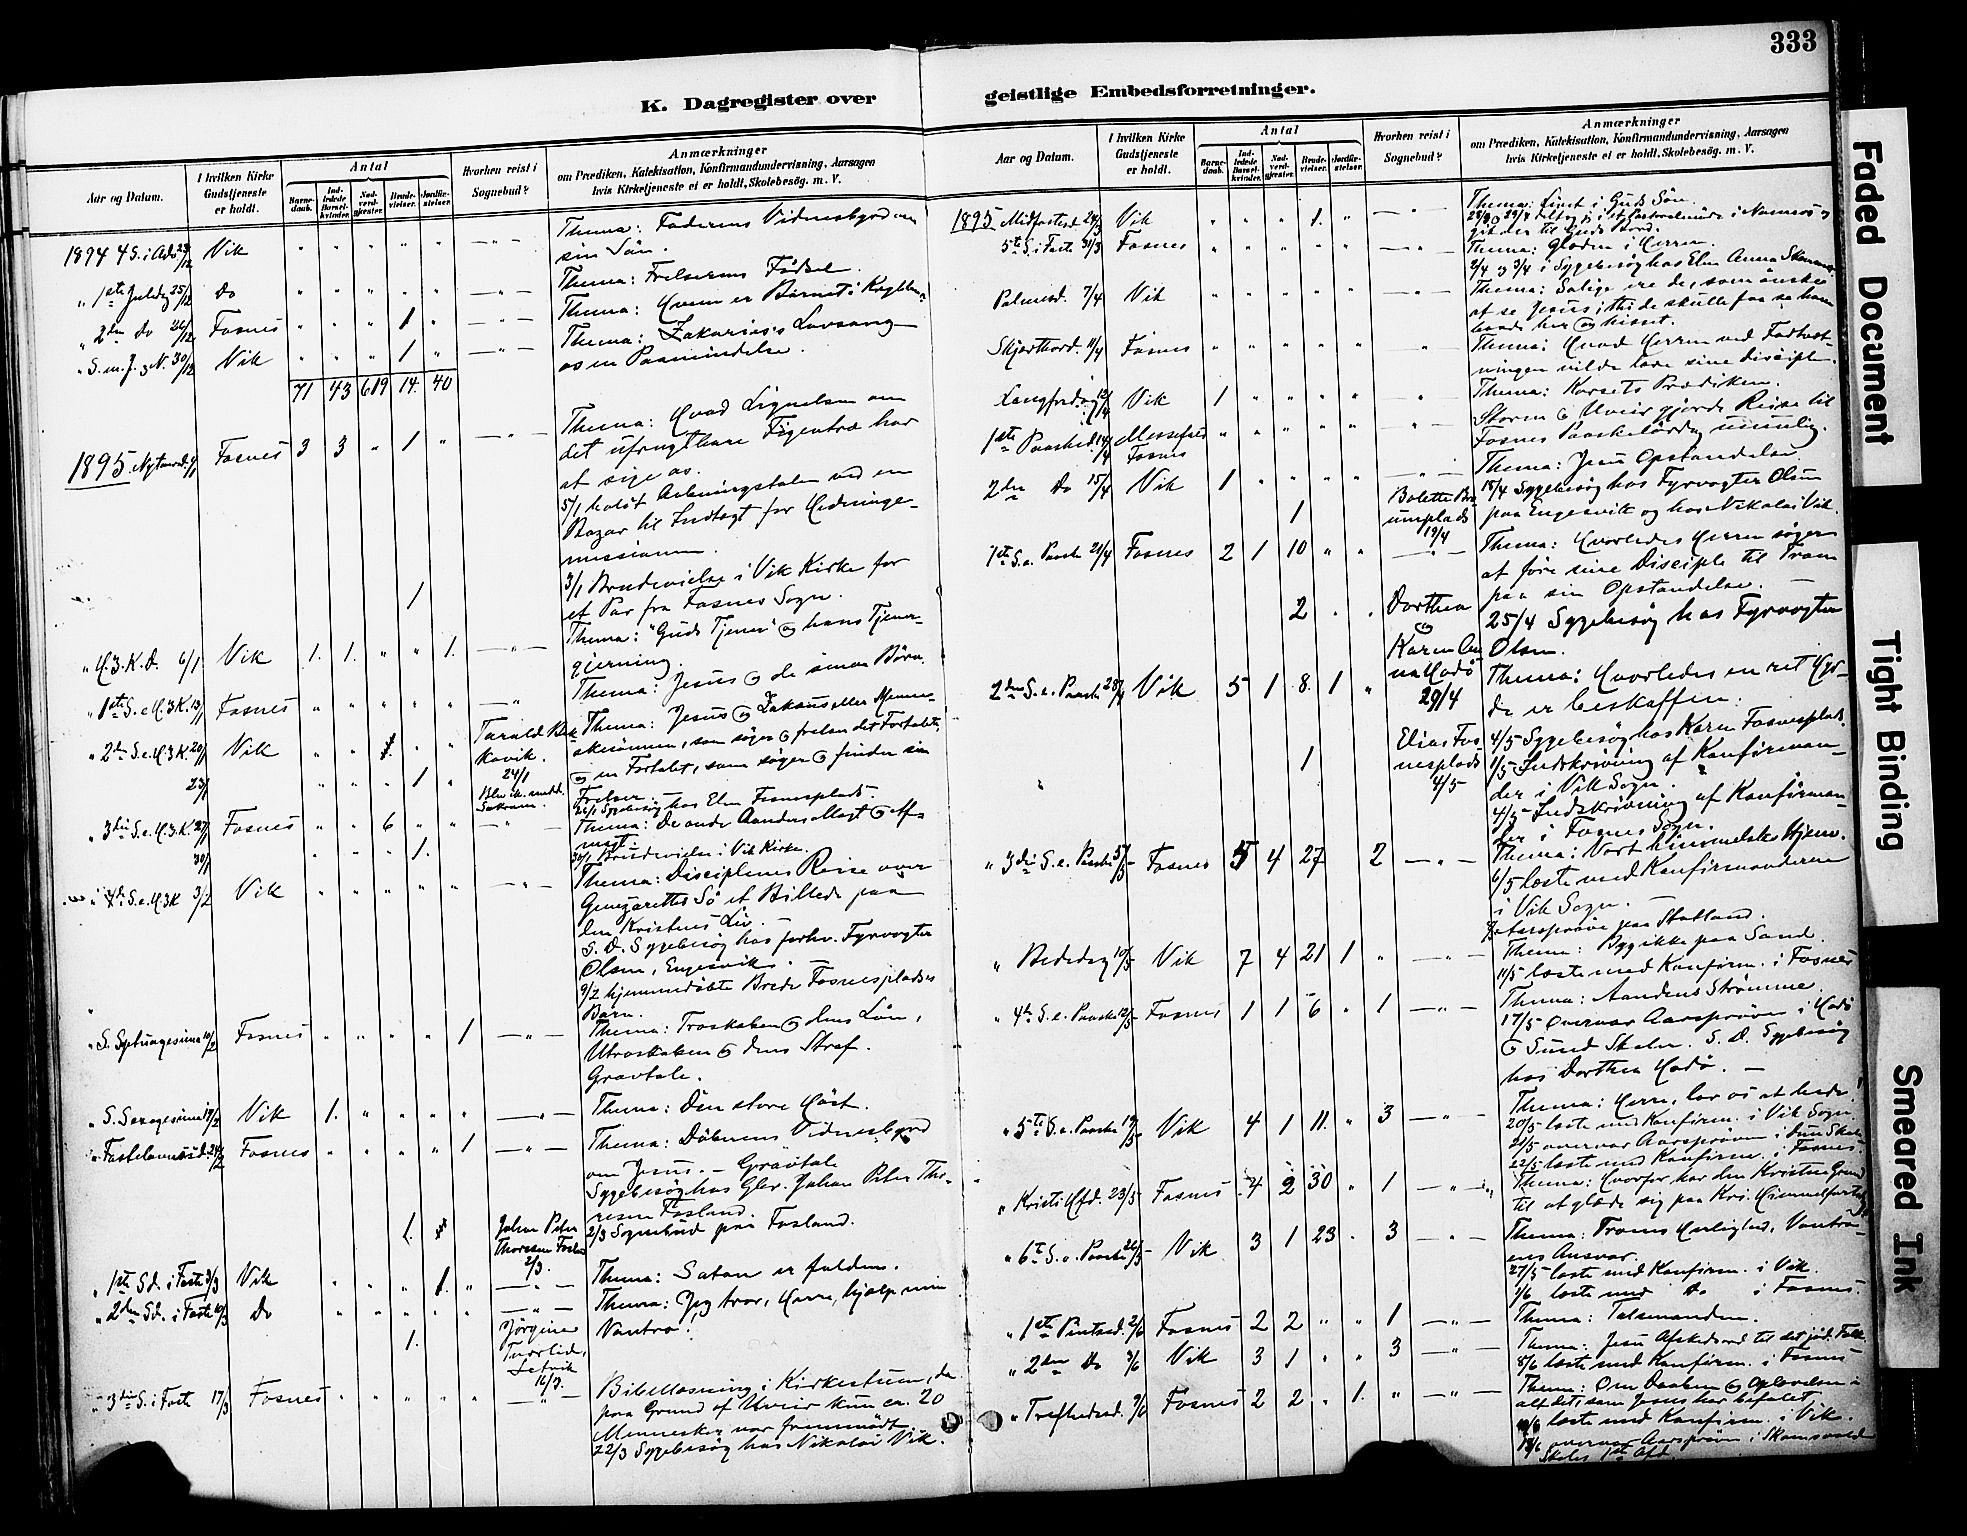 333
K. Dagregister over
geistlige Embedsforretninger.
Aar og Datum.
I hvilken Kirke Gudstjeneste er holdt.
Antal
Barne-daab.
Ind-ledede Barsel-kvinder.
Nad-verd-gjester.
Brude-vielser.
Jordfæ-stelser.
Hvorhen reist i Sognebud?
Anmærkninger
om Prædiken, Katekisation, Konfirmandundervisning, Aarsagen
hvis Kirketjeneste ei er holdt, Skolebesøg. m. V.
1894 4 S. i Adv. 23/12 Vik " " " " " — " —
Thema: Faderens Vidnesbyrd om
sin Søn.
" 1ste Juledag 25/12 Do " " " " " — " —
Thema: Frelserens Fødsel.
" 2den Do 26/12 Fosnes " " " 1 " — " —
Thema: Hvem er Barnet i Krybben
" S. m. J. og N. 30/12 Vik " " " 1 " — " —
Thema: Zakarias's Lovsang
os en Paamindelse.
71 43 619 14. 40
1895 Nytaarsd. 1/1 Fosnes 3 3 " 1 " — " —
Thema: Hvad Lignelsen om
det ufrugtbare Figentræ har
at sige os.
5/1 holdt Aabningstalen ved en
Bazar til Indtægt for Hedninge-
missionen.
1
3/1 Brudevielse i Vik Kirke for
et Par fra Fosnes Sogn.
" H. 3. K. D. 6/1 Vik 1. 1. " " 1. — " —
Thema: "Guds Tjener" og hans Tjener-
gjerning.
" 1ste S. e. H. 3 K. 13/1 Fosnes " " " " " — " —
Thema: Jesus og de smaa Børn.
" 2den S. e. H. 3 K. 20/1 Vik
24/1
Thema: Jesus og Zakæus eller Menne-
skesønnen, som søger og frelser det Fortabte,
og en Fortabt, som søger og finder sin
Frelser. —
23/1 1
26/1 Sygebesøg hos Elen Fosnesplads.
" 3die S. e. H. 3 K. 27/1 Fosnes " " 6 " " — " —
Thema: De onde Aanders Magt og Af-
magt —
30/1 1.
30/1 Brudevielse i Vik Kirke.
" 4de S. e. H. 3 K 3/2 Vik " " " " " — " —
Thema: Disciplenes Reise over
Genezarettes Sø et Billede paa
den Kristnes Liv. —
S. D. Sygebesøg hos forhv. Fyrvogter
Olsen, Engesvik. —
9/2 hjemmedøbte Brede Fosnesplads's
Barn.
" S. Septuagesima 10/2 Fosnes " " " " 1 — " —
Thema: Troskaben og dens Løn,
Utroskaben og dens Straf.
Gravtale.
" S. Sexagesima 17/2 Vik 1. " " " " — " —
Thema: Den store Høst.
" Fastelavnssønd. 24/2 Fosnes " " " " 1 — " —
Thema: Døberens Vidnesbyrd
om Jesus. — Gravtale
Sygebesøg hos Gbr. Johan Peter Tho-
resen Fosland.
Johan Peter
Thoresen Fosland
2/3.
2/3 Sognebud paa Fosland.
" 1ste Sd. i Faste 3/3 Vik " " " 1. " — " —
Thema: Satan er falden.
" 2den Sd. i Faste 10/3 Do " " " " " — " —
Thema: Jeg tror, Herre, hjælp min
Vantro!
1.
Jørgine
" 3die S. i Faste 17/3 Fosnes " " " " " — " —
Bibellæsning i Kirkestuen, da
paa Grund af Uveir kun ca. 20
Mennesker var fremmødt.
22/3 Sygebesøg hos Nikolai Vik.
Aar og Datum.
I hvilken Kirke Gudstjeneste er holdt.
Antal
Barne-daab.
Ind-ledede Barsel-kvinder.
Nad-verd-gjester.
Brude-vielser.
Jordfæ-stelser.
Hvorhen reist i Sognebud?
Anmærkninger
om Prædiken, Katekisation, Konfirmandundervisning, Aarsagen
hvis Kirketjeneste ei er holdt, Skolebesøg. m. V.
1895 Midfastesd. 24/3 Vik " " " 1. " — " —
Thema: Livet i Guds Søn.
28/3 og 29/3 deltog i et Pastoralmøde i Namsos og
gik der til Guds Bord.
5te S. i Faste 31/3 Fosnes " " " " " — " —
Thema: Glæden i Herren.
2/4 og 3/4 i Sygebesøg hos Elen Anna
Palmesd. 7/4 Vik " " " " " — " —
Thema: Salige ere de, som ønske
at se Jesus; thi de skulle faa se ham
baade her og hisset.
Skjærthorsd. 11/4 Fosnes " " " " " "
Thema: Hvad Herren ved Fodtvæt-
ningen vilde lære sine Disciple.
Langfredag 12/4 Vik 1 " " " " — " —
Thema: Korsets Prædiken.
Storm og Uveir gjorde Reise til
Fosnes Paaskelørdag umulig.
1ste Paasked. 14/4 Messefald Fosnes " " " " " — " —
2den Do 15/4 Vik 1 " " " " — " —
Thema: Jesu Opstandelse.
1
Bolette Bra-
unplads
19/4
18/4 Sygebesøg hos Fyrvogter Olsen
paa Engesvik og hos Nikolai Vik.
1ste S. e. Paaske 21/4 Fosnes 2 1 10 " " — " —
Thema: Hvorledes Herren søger
at føre sine Disciple til Troen
paa sin Opstandelse. —
2 " "
Dorthea
og
Karen An-
na Hodø
29/4
25/4 Sygebesøg hos Fyrvogter
Olsen.
2den S. e. Paaske 28/4 Vik 5 1 8. 1 "
Thema: Hvorledes en ret Hyr-
de er beskaffen.
1
Elias Fos-
nesplads
4/5
4/5 Sygebesøg hos Karen Fosnesplads.
1/5 Indskrivning af Konfirman-
der i Vik Sogn.
4/5 Indskrivning af Konfirman-
der i Fosnes Sogn.
" 3die S. e. Paaske 5/5 Fosnes 5 4 27 2 — " —
Thema: Vort himmelske Hjem.
6/5 læste med Konfirmanderne
i Vik Sogn. —
Aarsprøve paa Statland.
" Bededag 10/5 Vik 7 4 21 1 " — " —
Thema: Byg ikke paa Sand.
11/5 læste med Konfirm. i Fosnes
" 4de S. e. Paaske 12/5 Fosnes 1 1 6 " 1 — " —
Thema: Aandens Strømme.
17/5 Overvar Aarsprøven i Hodø
og Sund Skoler. S. D. Sygebesøg
hos Dorthea Hodø. —
" 5te S. e. Paaske 19/5 Vik 4 1 11. " 3 — " —
Thema: Herre, lær os at bede!
20/5 læste med Konfirm. i Vik Sogn.
21/5 overvar Aarsprøven i Duun Skole
22/5 læste med Konfirm. i Fosnes.
" Kristi Hfd. 23/5 Fosnes 4 2 30 " 1 — " —
Thema: Hvorfor har den Kristne Grund
til at glæde sig paa Kri. Himmelfartsd.
" 6te S. e. Paaske 26/5 Vik 3 1 23 " 3 — " —
Thema: Troens Herlighed, Vantro-
ens Ansvar.
27/5 læste med Konfirm. i Vik.
1/6 læste med Do i Fosnes.
" 1ste Pintsed. 2/6 Fosnes 2 2 " " 1 — " —
Thema: Talsmanden.
" 2den Do 3/6 Vik 3 1 " " 3 — " —
Thema: Jesu Afskedsord til det jød. Folk.
8/6 læste med Konfirm. i Fosnes
" Trefoldsd. 9/6 Fosnes 2 2 " 1. " — " —
Thema: Om Daaben og Oplærelse i
alt det, som Jesus har befalet.
10/6 læste med Konfirm. i Vik.
overvar Aarsprøven i
Skoles 1ste Afd.
Faded Document
Tight Binding
Smeared Ink